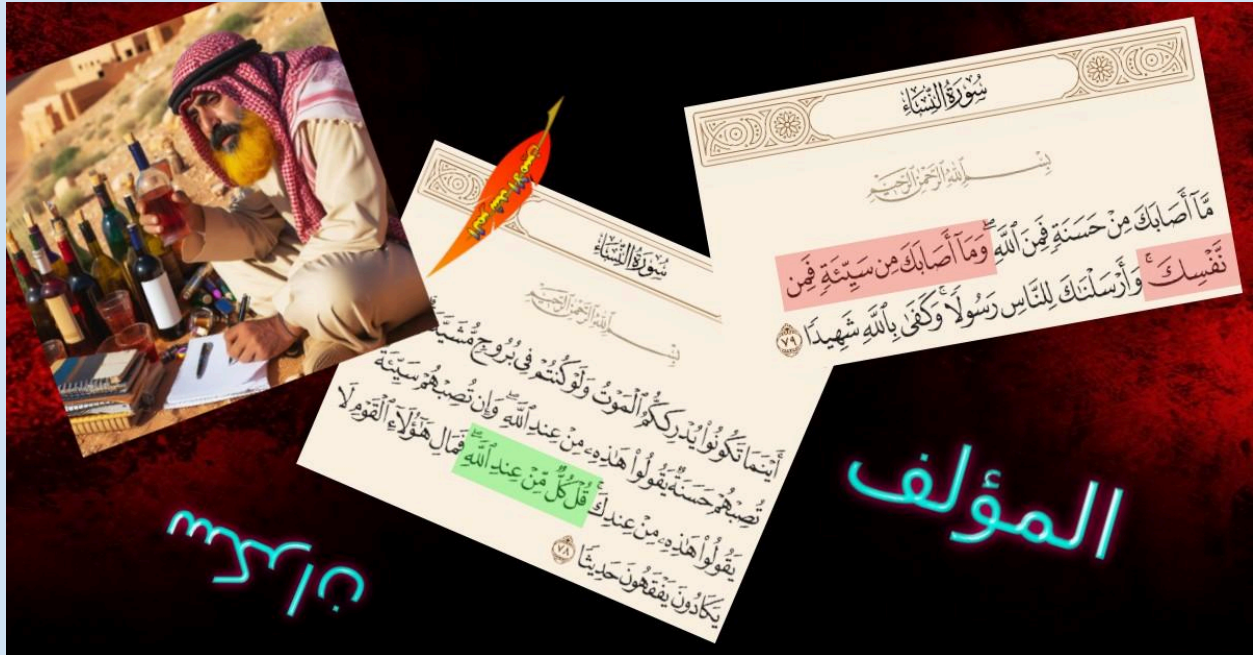 سُورَةُ النِّسَاءِ
بِسْمِ ٱللَّهِ ٱلرَّحْمَٰنِ ٱلرَّحِيمِ
مَّآ أَصَابَكَ مِنْ حَسَنَةٍ فَمِنَ ٱللَّهِ ۖ وَمَآ أَصَابَكَ مِن سَيِّئَةٍ فَمِن
نَّفْسِكَ ۚ وَأَرْسَلْنَٰكَ لِلنَّاسِ رَسُولًا ۚ وَكَفَىٰ بِٱللَّهِ شَهِيدًا ٧٩
سُورَةُ النِّسَاءِ
بِسْمِ ٱللَّهِ ٱلرَّحْمَٰنِ ٱلرَّحِيمِ
أَيْنَمَا تَكُونُوا۟ يُدْرِككُّمُ ٱلْمَوْتُ وَلَوْ كُنتُمْ فِى بُرُوجٍ مُّشَيَّدَةٍ ۗ وَإِن
تُصِبْهُمْ حَسَنَةٌ يَقُولُوا۟ هَٰذِهِۦ مِنْ عِندِ ٱللَّهِ ۖ وَإِن تُصِبْهُمْ سَيِّئَةٌ
يَقُولُوا۟ هَٰذِهِۦ مِنْ عِندِكَ ۚ قُلْ كُلٌّ مِّنْ عِندِ ٱللَّهِ ۖ فَمَالِ هَٰٓؤُلَآءِ ٱلْقَوْمِ لَا
يَكَادُونَ يَفْقَهُونَ حَدِيثًا ٧٨
المؤلف
سكران